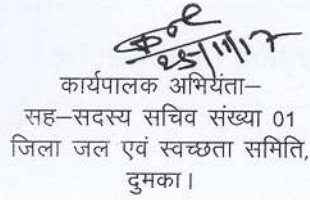 25/11/17
कार्यपालक अभियंता–
सह–सदस्य सचिव संख्या 01
जिला जल एवं स्वच्छता समिति,
दुमका।